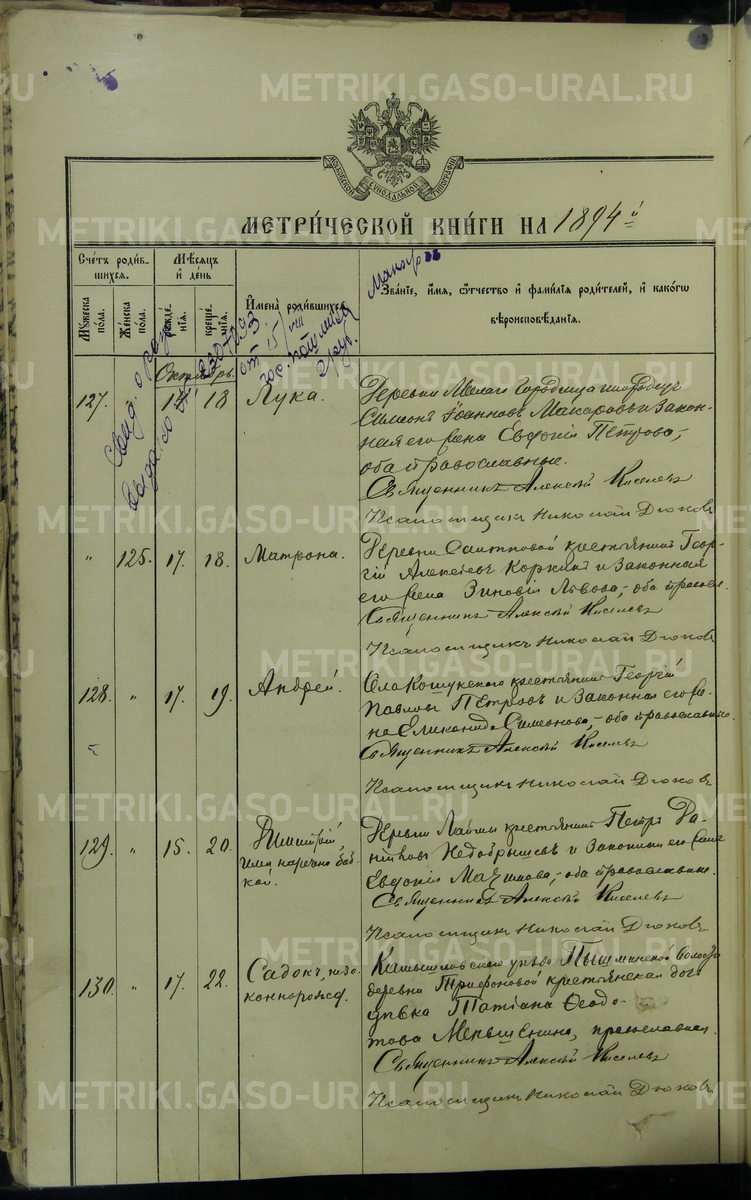 МОСКОВСКОЙ СѴНОДАЛЬНОЙ ТИПОГРАФІИ
МЕТРИ́ЧЕСКОЙ КНИ́ГИ НА 1894й
Сче́тъ роди́в-
шихся.
Мѣ́сяцъ
и҆ де́нь
Му́жеска
по́ла.
Же́нска
по́ла.
рожде́-
нія.
креще́-
нія.
И҆мена̀ роди́вшихся.
Зва́ніе, и҆́мя, ѻ҆́тчество и҆ фами́лія роди́телей, и҆ како́гѡ
вѣроисповѣ́данія.
Октябрь.
127. 17 18 Лука.
Деревни Малой Городища инородецъ
Симеонъ Іоанновъ Макаровъ и закон-
ная его жена Евдокія Петрова,
оба православные.
Священникъ Алексѣй Киселевъ
Псаломщикъ Николай Дюковъ
" 125. 17. 18. Матрона.
Деревни Саитковой крестьянинъ Геор-
гій Алексѣевъ Коркинъ и законная
его жена Зиновія Львова, оба правосл.
Священникъ Алексѣй Киселевъ
Псаломщикъ Николай Дюковъ
128. " 17. 19. Андрей.
Села Кошукскаго крестьянинъ Георгій
Павловъ Петровъ и законная его же-
на Еликонида Симеонова, оба православные.
Священникъ Алексѣй Киселевъ
Псаломщикъ Николай Дюковъ
129. " 15. 20. Димитрій,
имя наречено баб-
кой.
Деревни Лаймы крестьянинъ Петръ Да-
ниловъ Недобрышевъ и законная его жена
Евдокія, оба православные.
Священникъ Алексѣй Киселевъ
Псаломщикъ Николай Дюковъ
130. " 17. 22. Садокъ, неза-
коннорожд.
Камышловскаго уѣзда Пышминской волости
деревни Трифоновой крестьянская
дѣвка Татіана Ѳеодо-
това Меньшенина, православная.
Священникъ Алексѣй Киселевъ
Псаломщикъ Николай Дюковъ
METRIKI.GASO-URAL.RU